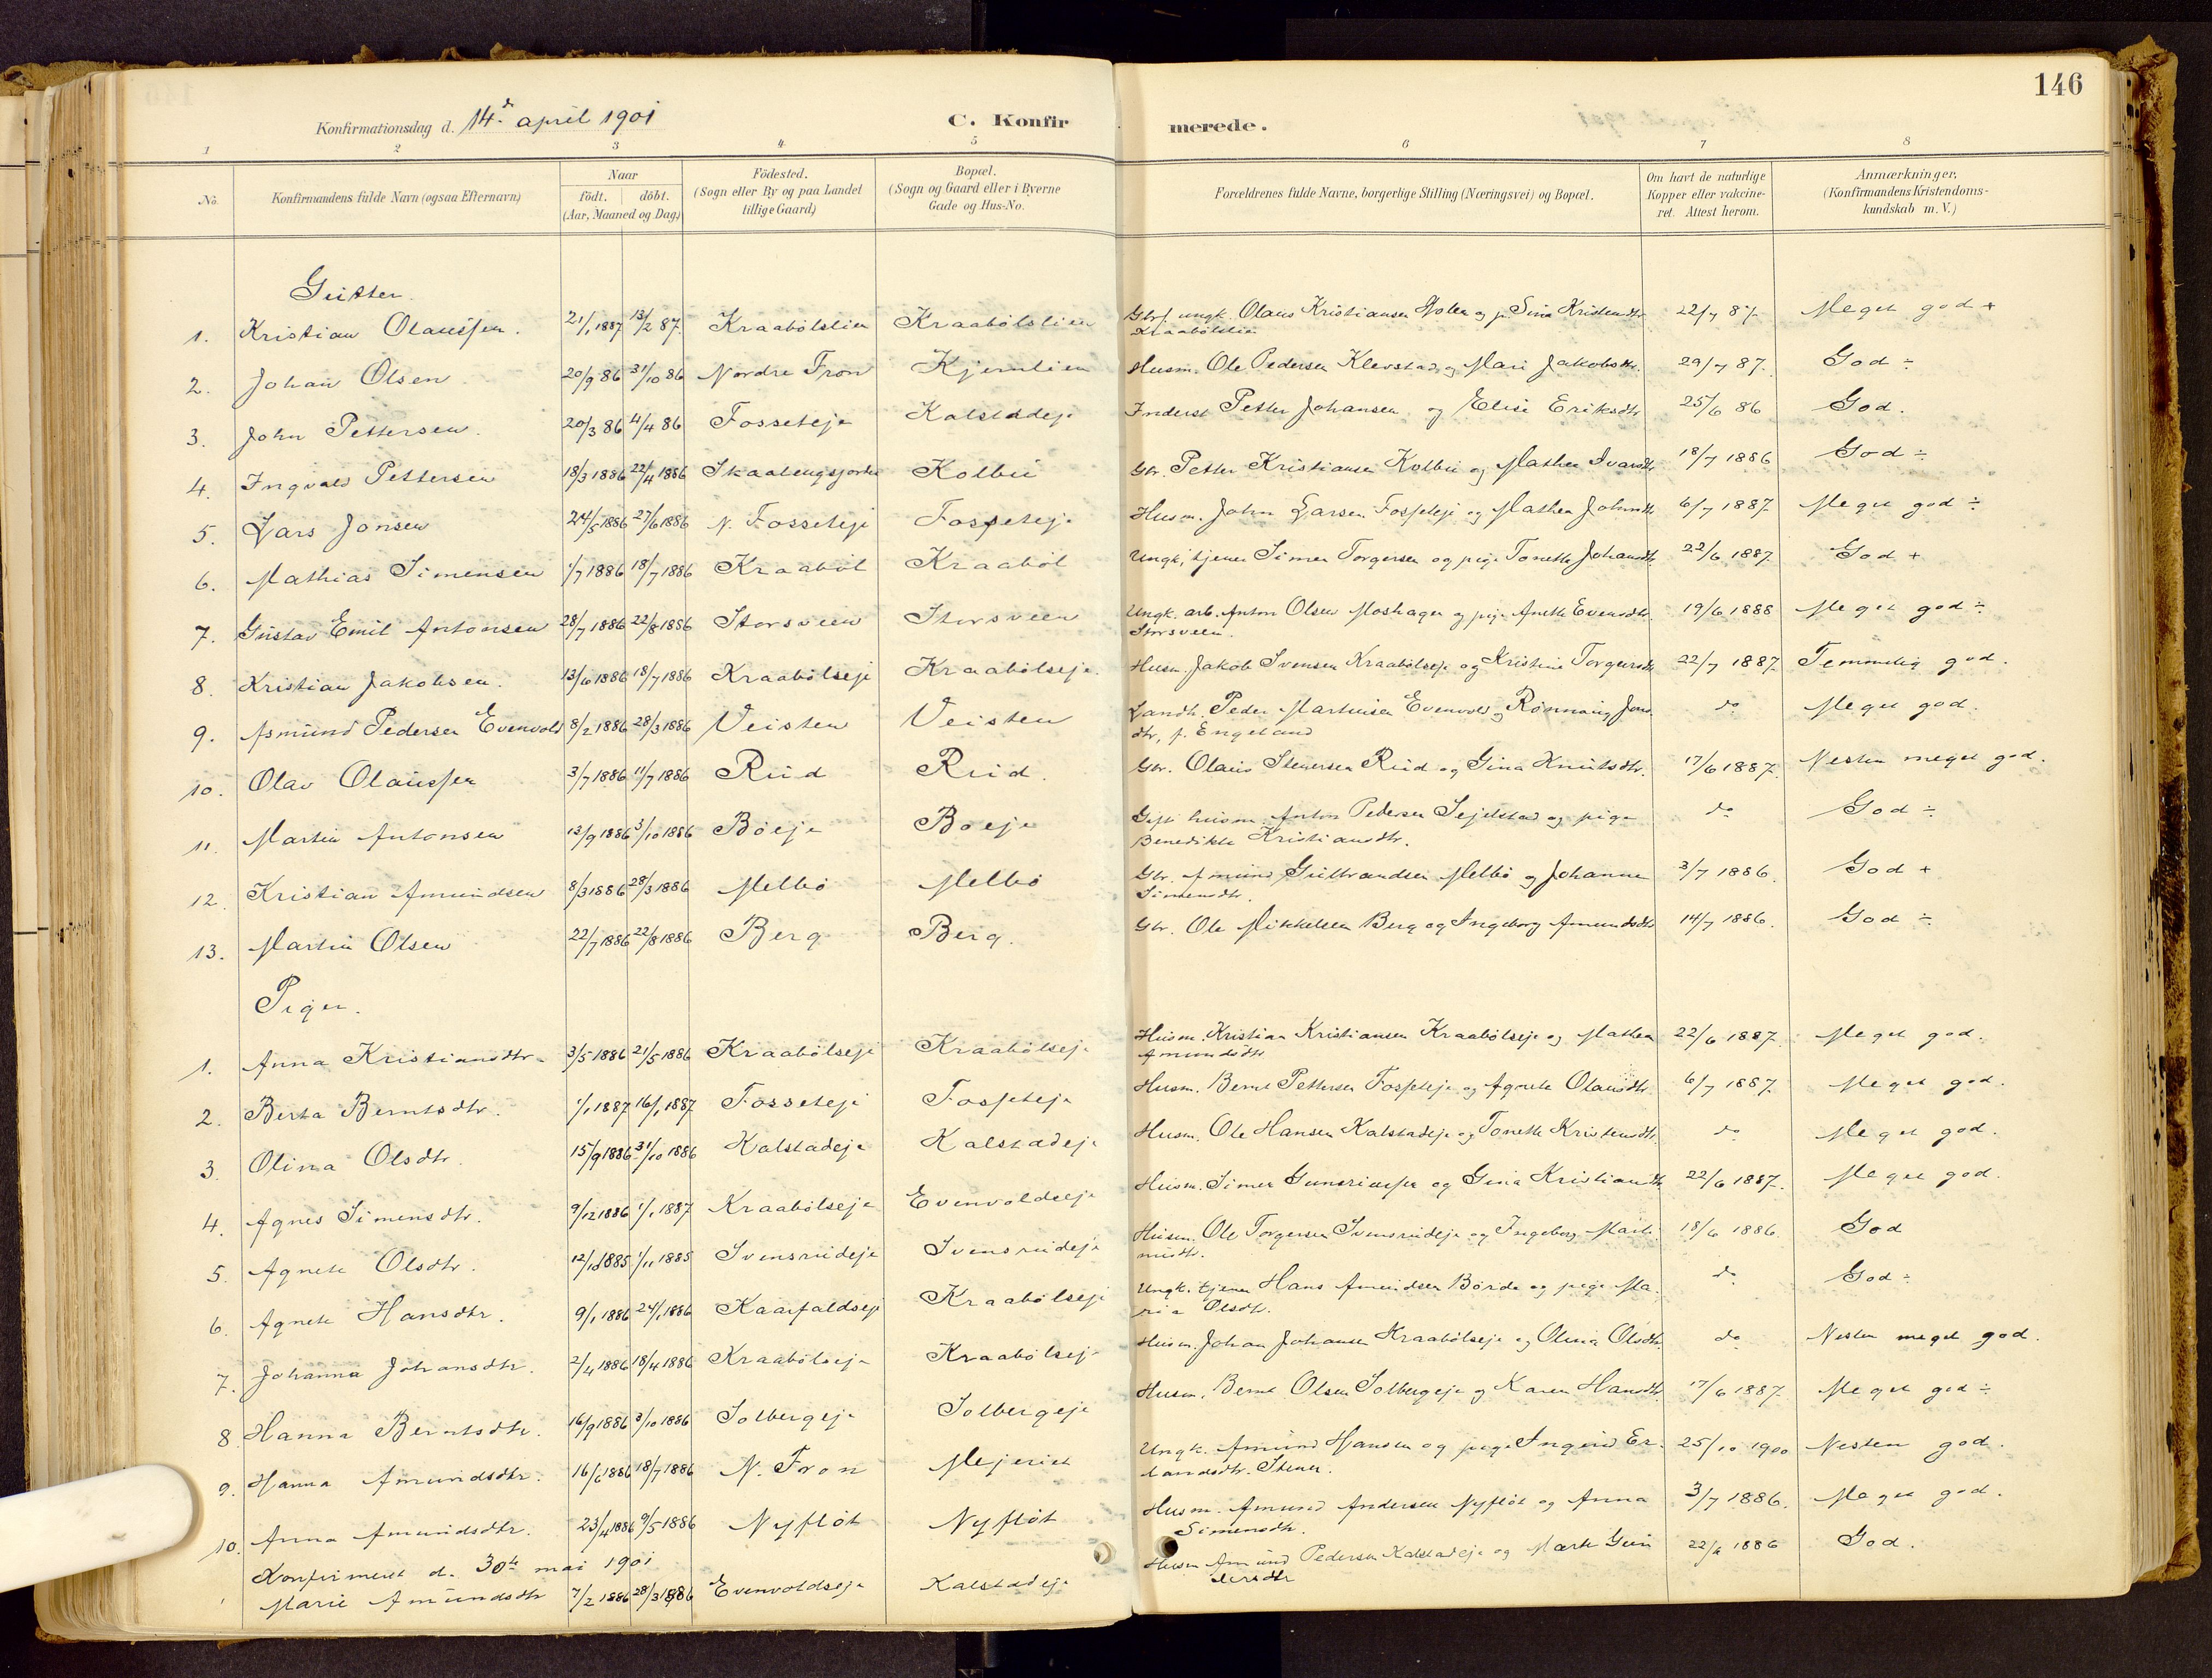 146
Konfirmationsdag d. 14de april 1901 C. Konfirmerede.
1 2 3 4 5 6 7 8
No. Konfirmandens fulde Navn (ogsaa Efternavn) Naar födt. döbt. (Aar, Maaned og Dag.) Födested. (Sogn eller By og paa Landet tillige Gaard) Bopæl. (Sogn og Gaard eller i Byerne Gade og Hus-No. Forældrenes fulde Navne, borgerlige Stilling (Næringsvei) og Bopæl. Om havt de naturlige Kopper eller vakcineret. Attest herom. Anmærkninger. (Konfirmandens Kristendomskundskab m. V.)
Gutter.
1. Kristian Olaussen. 21/1 1887 13/2 87. Kraabölslien Kraabölslien ungk. Olaus Kristiansen og p. Sina Kristensdtr. 22/7 87. Meget god +
Kraabölslien
2. Johan Olsen 20/9 86 31/10 86 Nordre Fron Kjernlien Husm. Ole Pedersen Klevstad og Mari Jakobsdtr. 29/7 87. God ÷
3. John Pettersen. 20/3 86 4/4 86 Fosseteje Kalstadeje Inderst Petter Johansen og Elise Eriksdtr 25/6 86 God.
4. Ingvald Pettersen 18/3 1886 22/4 1886 Kolbu Gbr. Petter Kristiansen Kolbu og Mathea Ivarsdtr 18/7 1886 God ÷
5. Lars Jonsen 24/5 1886 27/6 1886 N. Fosseteje Fosseteje Husm. John Larsen Fosseteje og Mathea Johnsdtr 6/7 1887. Meget god ÷
6. Mathias Simensen 1/7 1886 18/7 1886 Kraaböl Kraaböl Ungk. tjener Simen Torgersen og pige Tonette Johansdtr. 22/6 1887. God +
7. Gustav Emil Antonsen 28/7 1886 22/8 1886 Storsveen Storsveen Ungk. arb. Anton Olsen Moshagen og pige Anette Evensdtr. 19/6 1888 Meget god ÷
Storsveen.
8. Kristian Jakobsen. 13/6 1886 18/7 1886 Kraabölseje Kraabölseje. Husm. Jakob Svensen Kraabölseje og Kristine Torgersdtr 22/7 1887. Temmelig god.
9. Asmund Pedersen Evenvold 8/2 1886 28/3 1886 Veisten Veisten Landh. Peder Martinsen Evenvold og Rönnaug Jonsdtr, f. Engeland do Meget god.
10. Olav Olaussen 3/7 1886 11/7 1886 Rud Rud. Gbr. Olaus Stenersen Rud og Gina Knutsdtr. 17/6 1887. Nesten meget god.
11. Martin Antonsen 12/9 1886 3/10 1886 Böeje Böeje Gift husm. Anton Pedersen Sejelstad og pige do God ÷
Benedikte Kristiansdtr.
12. Kristian Amundsen 8/3 1886 28/3 1886 Melbö Melbö Gbr. Amund Gulbrandsen Melbö og Johanne 3/7 1886. God +
Simensdtr.
13. Martin Olsen 22/7 1886 22/8 1886 Berg Berg. Gbr. Ole Mikkelsen Berg og Ingeborg Amundsdtr 14/7 1886. God ÷
Piger.
1. Anna Kristiansdtr. 3/5 1886 21/5 1886 Kraabölseje Kraabölseje Husm. Kristian Kristiansen Kraabölseje og Mathea 22/6 1887. Meget god.
Amundsdtr
2. Berta Berntsdtr. 1/1 1887 16/1 1887 Fosseteje Fosseteje Husm. Bernt Pettersen Fosseteje og Agnete Olausdtr 6/7 1887. Meget god.
3. Olina Olsdtr. 15/9 1886 31/10 1886 Kalstadeje Kalstadeje Husm. Ole Hansen Kalstadeje og Tonette Kristensdtr. do Meget god.
4. Agnes Simensdtr. 9/12 1886 1/1 1887 Kraabölseje Evenvoldseje Husm. Simen og Gina Kristiansdtr 22/6 1887. Meget god.
5. Agnete Olsdtr. 12/10 1885 1/11 1885 Svensrudeje Svensrudeje Husm. Ole Torgersen Svensrudeje og Ingeborg Martinusdtr. 18/6 1886. God
6. Agnete Hansdtr. 9/1 1886 24/1 1886 Kraabölseje Ungk. tjener Hans Amundsen Börde og pige Maria Olsdtr. do God ÷
7. Johanna Johansdtr. 2/4 1886 18/4 1886 Kraabölseje Kraabölseje Husm. Johan Johansen Kraabölseje og Olina Olsdtr. do Nesten meget god.
8. Hanna Berntsdtr. 16/9 1886 3/10 1886 Solbergeje Solbergeje Husm. Bernt Olsen Solbergeje og Karen Hansdtr. 17/6 1887. Meget god ÷
9. Hanna Amundsdtr. 16/6 1886 18/7 1886 N. Fron Mejeriet Ungk. Amund Hansen og pige Ingrid Erlandsdtr. 25/10 1900 Nesten god.
10. Anna Amundsdtr. 23/4 1886 9/5 1886 Nyflöt Nyflöt Husm. Amund Andersen Nyflöt og Anna 3/7 1886. Meget god.
Simensdtr.
Konfirmeret d. 30te mai 1901
1 Marie Amundsdtr 7/2 1886 28/3 1886 Evenvoldseje Kalstadeje Husm Amund Pedersen Kalstadeje og Marte 22/6 1886 God.